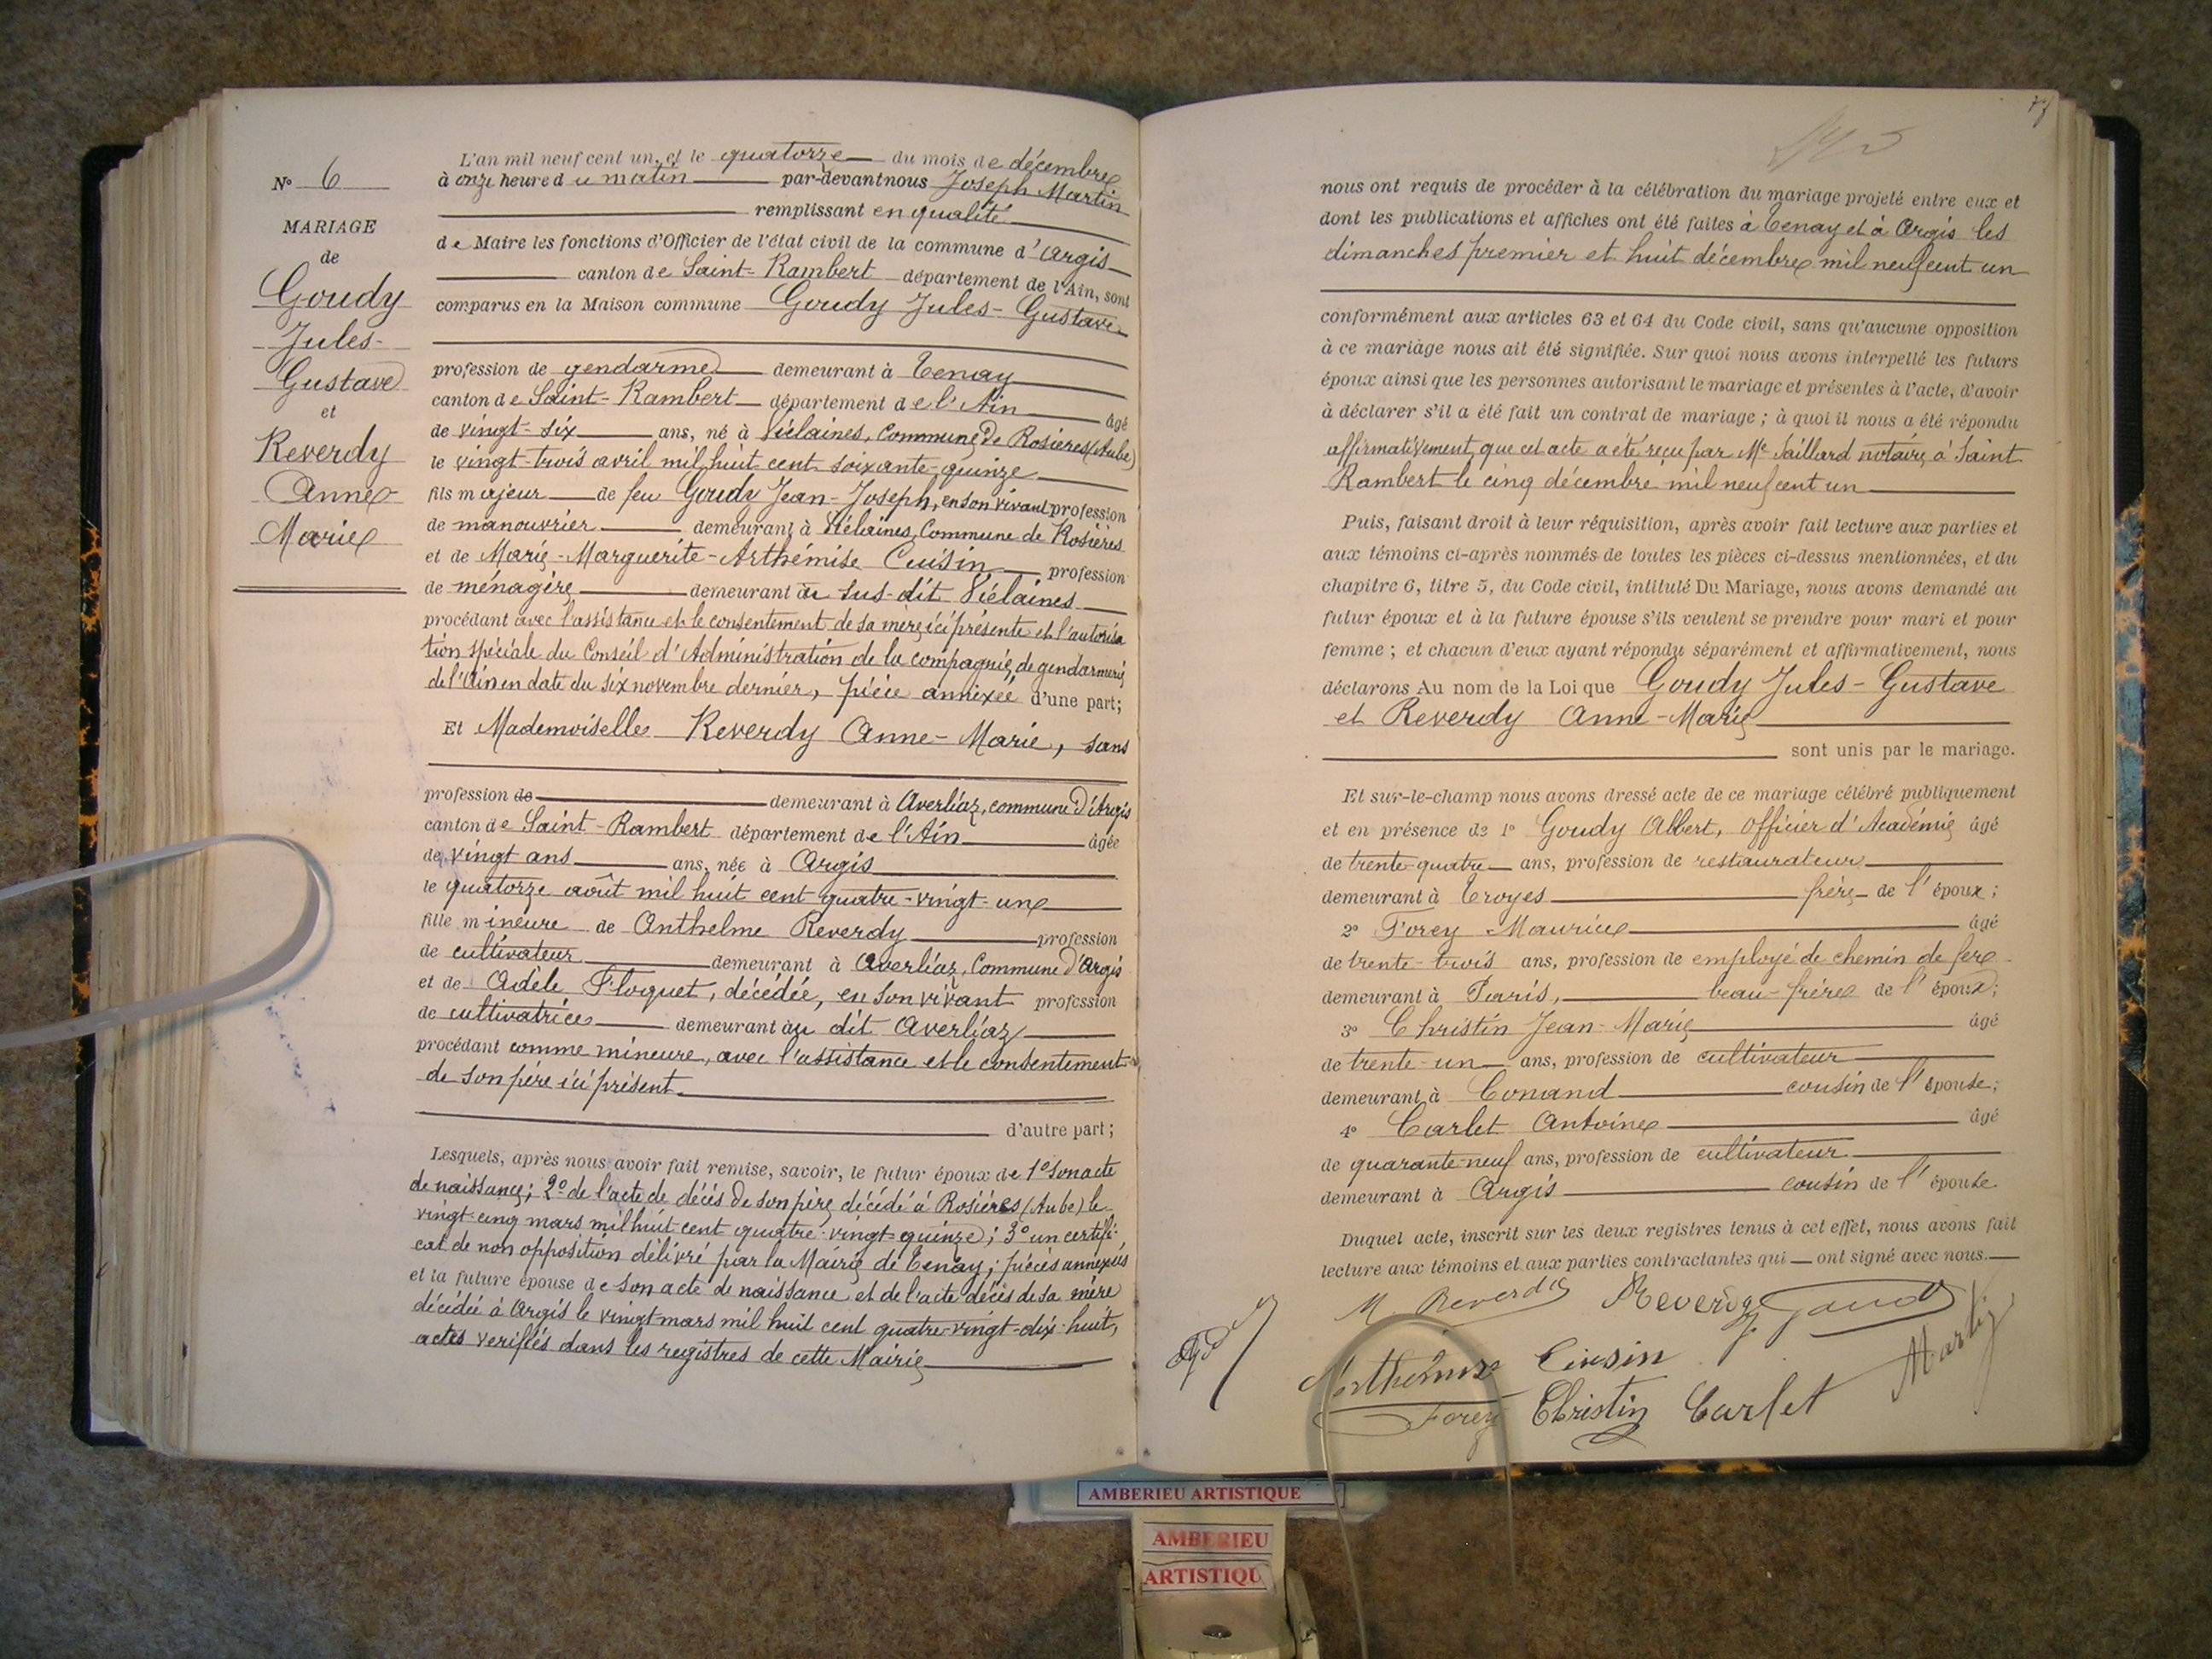 N° 6
MARIAGE
de
Goudy
Jules-
Gustave
et
Reverdy
Anne
Marie
L'an mil neuf cent un, et le quatorze du mois de décembre
à onze heure du matin par-devant nous Joseph Martin
remplissant en qualité
de Maire les fonctions d'Officier de l'état civil de la commune d'Argis
canton de Saint-Rambert département de l'Ain, sont
comparus en la Maison commune Goudy Jules-Gustave
profession de gendarme demeurant à Tenay
canton de Saint-Rambert département de l'Ain âgé
de vingt-six ans, né à Viélaines, Commune de Rosières (Aube)
le vingt-trois avril mil huit cent soixante-quinze
fils majeur de feu Goudy Jean-Joseph, en son vivant profession
de manouvrier demeurant à Viélaines, Commune de Rosières
et de Marie-Marguerite-Arthémise Cuisin profession
de ménagère demeurant au sus-dit Viélaines
procédant avec l'assistance et le consentement de sa mère ici présente et l'autorisa
tion spéciale du Conseil d'Administration de la compagnie de gendarmerie
de l'Ain en date du six novembre dernier, pièce annexée d'une part;
Et Mademoiselle Reverdy Anne-Marie, sans
profession de demeurant à Averliaz, commune d'Argis
canton de Saint-Rambert département de l'Ain âgée
de vingt ans ans, née à Argis
le quatorze août mil huit cent quatre-vingt-un
fille mineure de Anthelme Reverdy profession
de cultivateur demeurant à Averliaz, Commune d'Argis
et de Adèle Floquet, décédée, en son vivant profession
de cultivatrice demeurant au dit Averliaz
procédant comme mineure, avec l'assistance et le consentement
de son père ici présent.
d'autre part;
Lesquels, après nous avoir fait remise, savoir, le futur époux de 1° son acte
de naissance; 2° de l'acte de décès de son père décédé à Rosières (Aube) le
vingt-cinq mars mil huit cent quatre-vingt-quinze; 3° un certifi-
cat de non opposition délivré par la Mairie de Tenay; pièces annexées
et la future épouse de son acte de naissance et de l'acte décès de sa mère
décédée à Argis le vingt mars mil huit cent quatre-vingt-dix-huit,
actes verifiés dans les registres de cette Mairie
nous ont requis de procéder à la célébration du mariage projeté entre eux et
dont les publications et affiches ont été faites à Tenay et à Argis les
dimanches premier et huit décembre mil neuf cent un
conformément aux articles 63 et 64 du Code civil, sans qu'aucune opposition
à ce mariage nous ait été signifiée. Sur quoi nous avons interpellé les futurs
époux ainsi que les personnes autorisant le mariage et présentes à l'acte, d'avoir
à déclarer s'il a été fait un contrat de mariage; à quoi il nous a été répondu
affirmativement, que cet acte a été reçu par Me Saillard notaire à Saint
Rambert le cinq décembre mil neuf cent un
Puis, faisant droit à leur réquisition, après avoir fait lecture aux parties et
aux témoins ci-après nommés de toutes les pièces ci-dessus mentionnées, et du
chapitre 6, titre 5, du Code civil, intitulé Du Mariage, nous avons demandé au
futur époux et à la future épouse s'ils veulent se prendre pour mari et pour
femme; et chacun d'eux ayant répondu séparément et affirmativement, nous
déclarons Au nom de la Loi que Goudy Jules-Gustave
et Reverdy Anne-Marie
sont unis par le mariage.
Et sur-le-champ nous avons dressé acte de ce mariage célébré publiquement
et en présence de 1° Goudy Albert, Officier d'Académie âgé
de trente-quatre ans, profession de restaurateur
demeurant à Troyes frère de l'époux;
2° Forey Maurice âgé
de trente-trois ans, profession de employé de chemin de fer
demeurant à Paris, beau-frère de l'époux;
3° Christin Jean-Marie âgé
de trente-un ans, profession de cultivateur
demeurant à Conand cousin de l'épouse;
4° Carlet Antoine âgé
de quarante-neuf ans, profession de cultivateur
demeurant à Argis cousin de l'épouse
Duquel acte, inscrit sur les deux registres tenus à cet effet, nous avons fait
lecture aux témoins et aux parties contractantes qui ont signé avec nous.
M. Reverdy Reverdy Goudy
Arthémise Cuisin Martin
Forey Christin Carlet
AMBERIEU ARTISTIQUE
AMBERIEU
ARTISTIQU